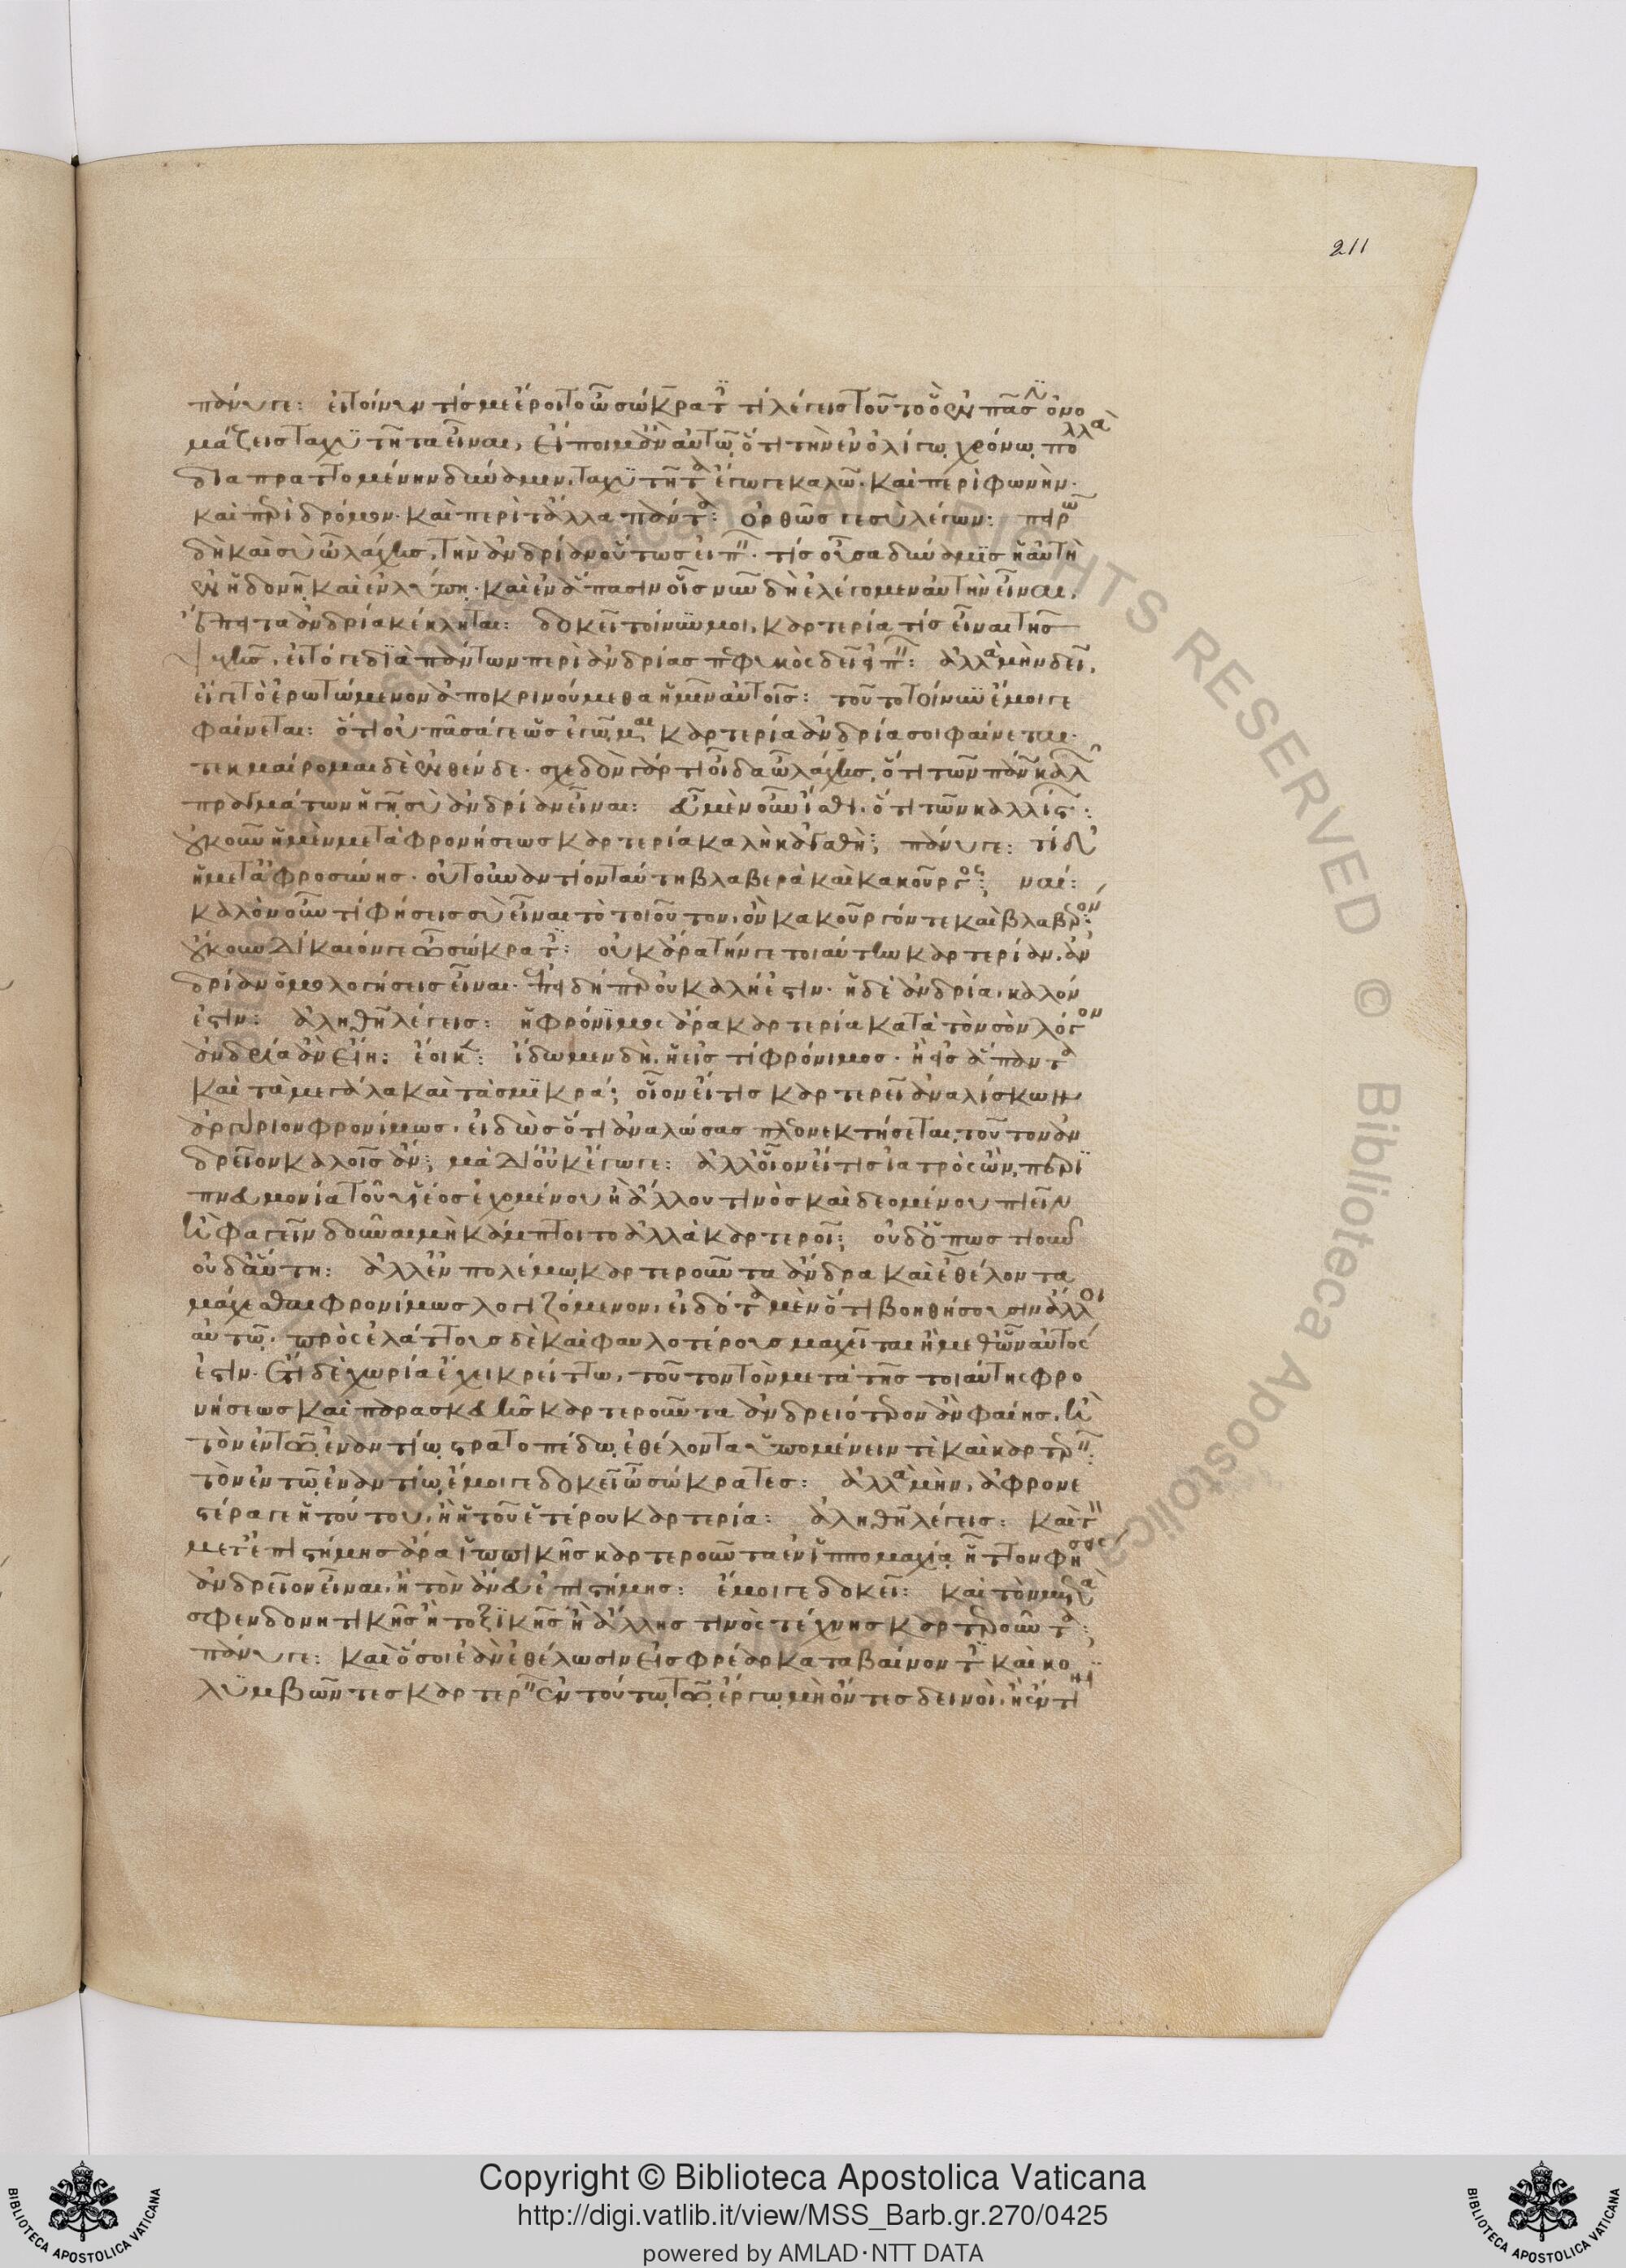 211
πάνυγε: εἰ τοίνυν τίς με ἔροιτο ὦ σώκρατ τί λέγεις τοῦτο ὃ ἐν πᾶσιν ὀνο
μάζεις ταχυτῆτα εἶναι, εἴποιμ' ἂν αὐτῶ, ὅτι τὴν ἐν ὀλίγω χρόνω πολλὰ
διαπραττομένην δύναμιν, ταχυτῆτα ἔγωγε καλῶ. καὶ περὶ φωνὴν.
καὶ περὶ δρόμον. καὶ περὶ τἄλλα πάντα: ὀρθῶς γε σὺ λέγων: πειρῶ
δὴ καὶ σὺ ὦ λάχης, τὴν ἀνδρίαν οὕτως εἰπεῖν. τίς οὖσα δύναμις ἡ αὐτὴ
ἐν ἡδονῆ καὶ ἐν λύπη. καὶ ἐν ἅπασιν οἷς νῦν δὴ ἐλέγομεν αὐτὴν εἶναι,
ἔπειτα ἀνδρία κέκληται: δοκεῖ τοίνυν μοι, καρτερία τίς εἶναι τῆς
ψυχῆς, εἰ τό γε διὰ πάντων περὶ ἀνδρίας πεφυκὸς δεῖ εἰπεῖν: ἀλλὰ μὴν δεῖ,
εἴ γε τὸ ἐρωτώμενον ἀποκρινούμεθα ἡμῖν αὐτοῖς: τοῦτο τοίνυν ἔμοιγε
φαίνεται: ὅτι οὐ πᾶσά γε ὡς ἐγῶμαι καρτερία ἀνδρία σοι φαίνεται.
τεκμαίρομαι δὲ ἐνθένδε. σχεδὸν γάρ τι οἶδα ὦ λάχης, ὅτι τῶν πάνυ καλῶν
πραγμάτων ἡγῆ σὺ ἀνδρίαν εἶναι: εὖ μὲν οὖν ἴσθι, ὅτι τῶν καλλίστων:
οὐκοῦν ἡ μὲν μετὰ φρονήσεως καρτερία καλὴ κἀγαθή; πάνυγε: τί δ'
ἡ μετ' ἀφροσύνης. οὐ τοὐναντίον ταύτη βλαβερὰ καὶ κακοῦργος; ναί:
καλὸν οὖν τί φήσεις σὺ εἶναι τὸ τοιοῦτον, ὂν κακοῦργόν τε καὶ βλαβερόν:
οὔκουν δίκαιόν γε ὦ σώκρατ: οὐκ ἄρα τήν γε τοιαύτην καρτερίαν, ἀν
δρίαν ὁμολογήσεις εἶναι. ἐπειδήπερ οὐ καλή ἐστιν. ἡ δὲ ἀνδρία, καλόν
ἐστιν: ἀληθῆ λέγεις: ἡ φρόνιμος ἄρα καρτερία κατὰ τὸν σὸν λόγον
ἀνδρία ἂν εἴη: ἔοικεν: ἴδωμεν δὴ, ἡ εἴς τι φρόνιμος. ἢ εἰς ἅπαντα
καὶ τὰ μεγάλα καὶ τὰ σμικρά; οἷον εἴ τις καρτερεῖ ἀναλίσκων
ἀργύριον φρονίμως, εἰδὼς ὅτι ἀναλώσας πλέον ἐκτήσεται, τοῦτον ἀν
δρεῖον καλοῖς ἄν; μὰ δι' οὐκ ἔγωγε: ἀλλ' οἷον εἴ τις ἰατρὸς ὢν, περι
πνευμονία τοῦ υἱέος ἐχομένου ἢ ἄλλου τινὸς καὶ δεομένου πιεῖν
ἢ φαγεῖν δοῦναι μὴ κάμπτοιτο ἀλλὰ καρτεροῖ; οὐδ' ὁπωστιοῦν
οὐδ' αὕτη: ἀλλ' ἐν πολέμω καρτεροῦντα ἄνδρα καὶ ἐθέλοντα
μάχεσθαι φρονίμως λογιζόμενον, εἰδότα μὲν ὅτι βοηθήσουσιν ἄλλοι
αὐτῶ, πρὸς ἐλάττους δὲ καὶ φαυλοτέρους μαχεῖται ἢ μεθ' ὧν αὐτός
ἐστιν. ἔτι δὲ χωρία ἔχει κρείττω, τοῦτον τὸν μετὰ τῆς τοιαύτης φρο
νήσεως καὶ παρασκευῆς καρτεροῦντα ἀνδρειότερον ἂν φαίης, ἢ
τὸν ἐν τῶ ἐναντίω στρατοπέδω ἐθέλοντα ὑπομένειν τὲ καὶ καρτερεῖν:
τὸν ἐν τῶ ἐναντίω ἔμοιγε δοκεῖ ὦ σώκρατες: ἀλλὰ μὴν, ἀφρονε
στέρα γε ἡ τούτου, ἢ ἡ τοῦ ἑτέρου καρτερία: ἀληθῆ λέγεις: καὶ τὸν
μετ' ἐπιστήμης ἄρα ἱππικῆς καρτεροῦντα ἐν ἱππομαχία ἧττον φήσεις
ἀνδρεῖον εἶναι, ἢ τὸν ἄνευ ἐπιστήμης: ἔμοιγε δοκεῖ: καὶ τὸν μετὰ
σφενδονητικῆς ἢ τοξικῆς ἢ ἄλλης τινὸς τέχνης καρτεροῦντα:
πάνυγε: καὶ ὅσοι ἐὰν ἐθέλωσιν εἰς φρέαρ καταβαίνοντες καὶ κο
λυμβῶντες καρτερεῖν ἐν τούτω τῶ ἔργω μὴ ὄντες δεινοὶ, ἢ ἔν τινι
Copyright © Biblioteca Apostolica Vaticana
http://digi.vatlib.it/view/MSS_Barb.gr.270/0425
powered by AMLAD·NTT DATA
BIBLIOTECA APOSTOLICA VATICANA
BIBLIOTECA APOSTOLICA VATICANA